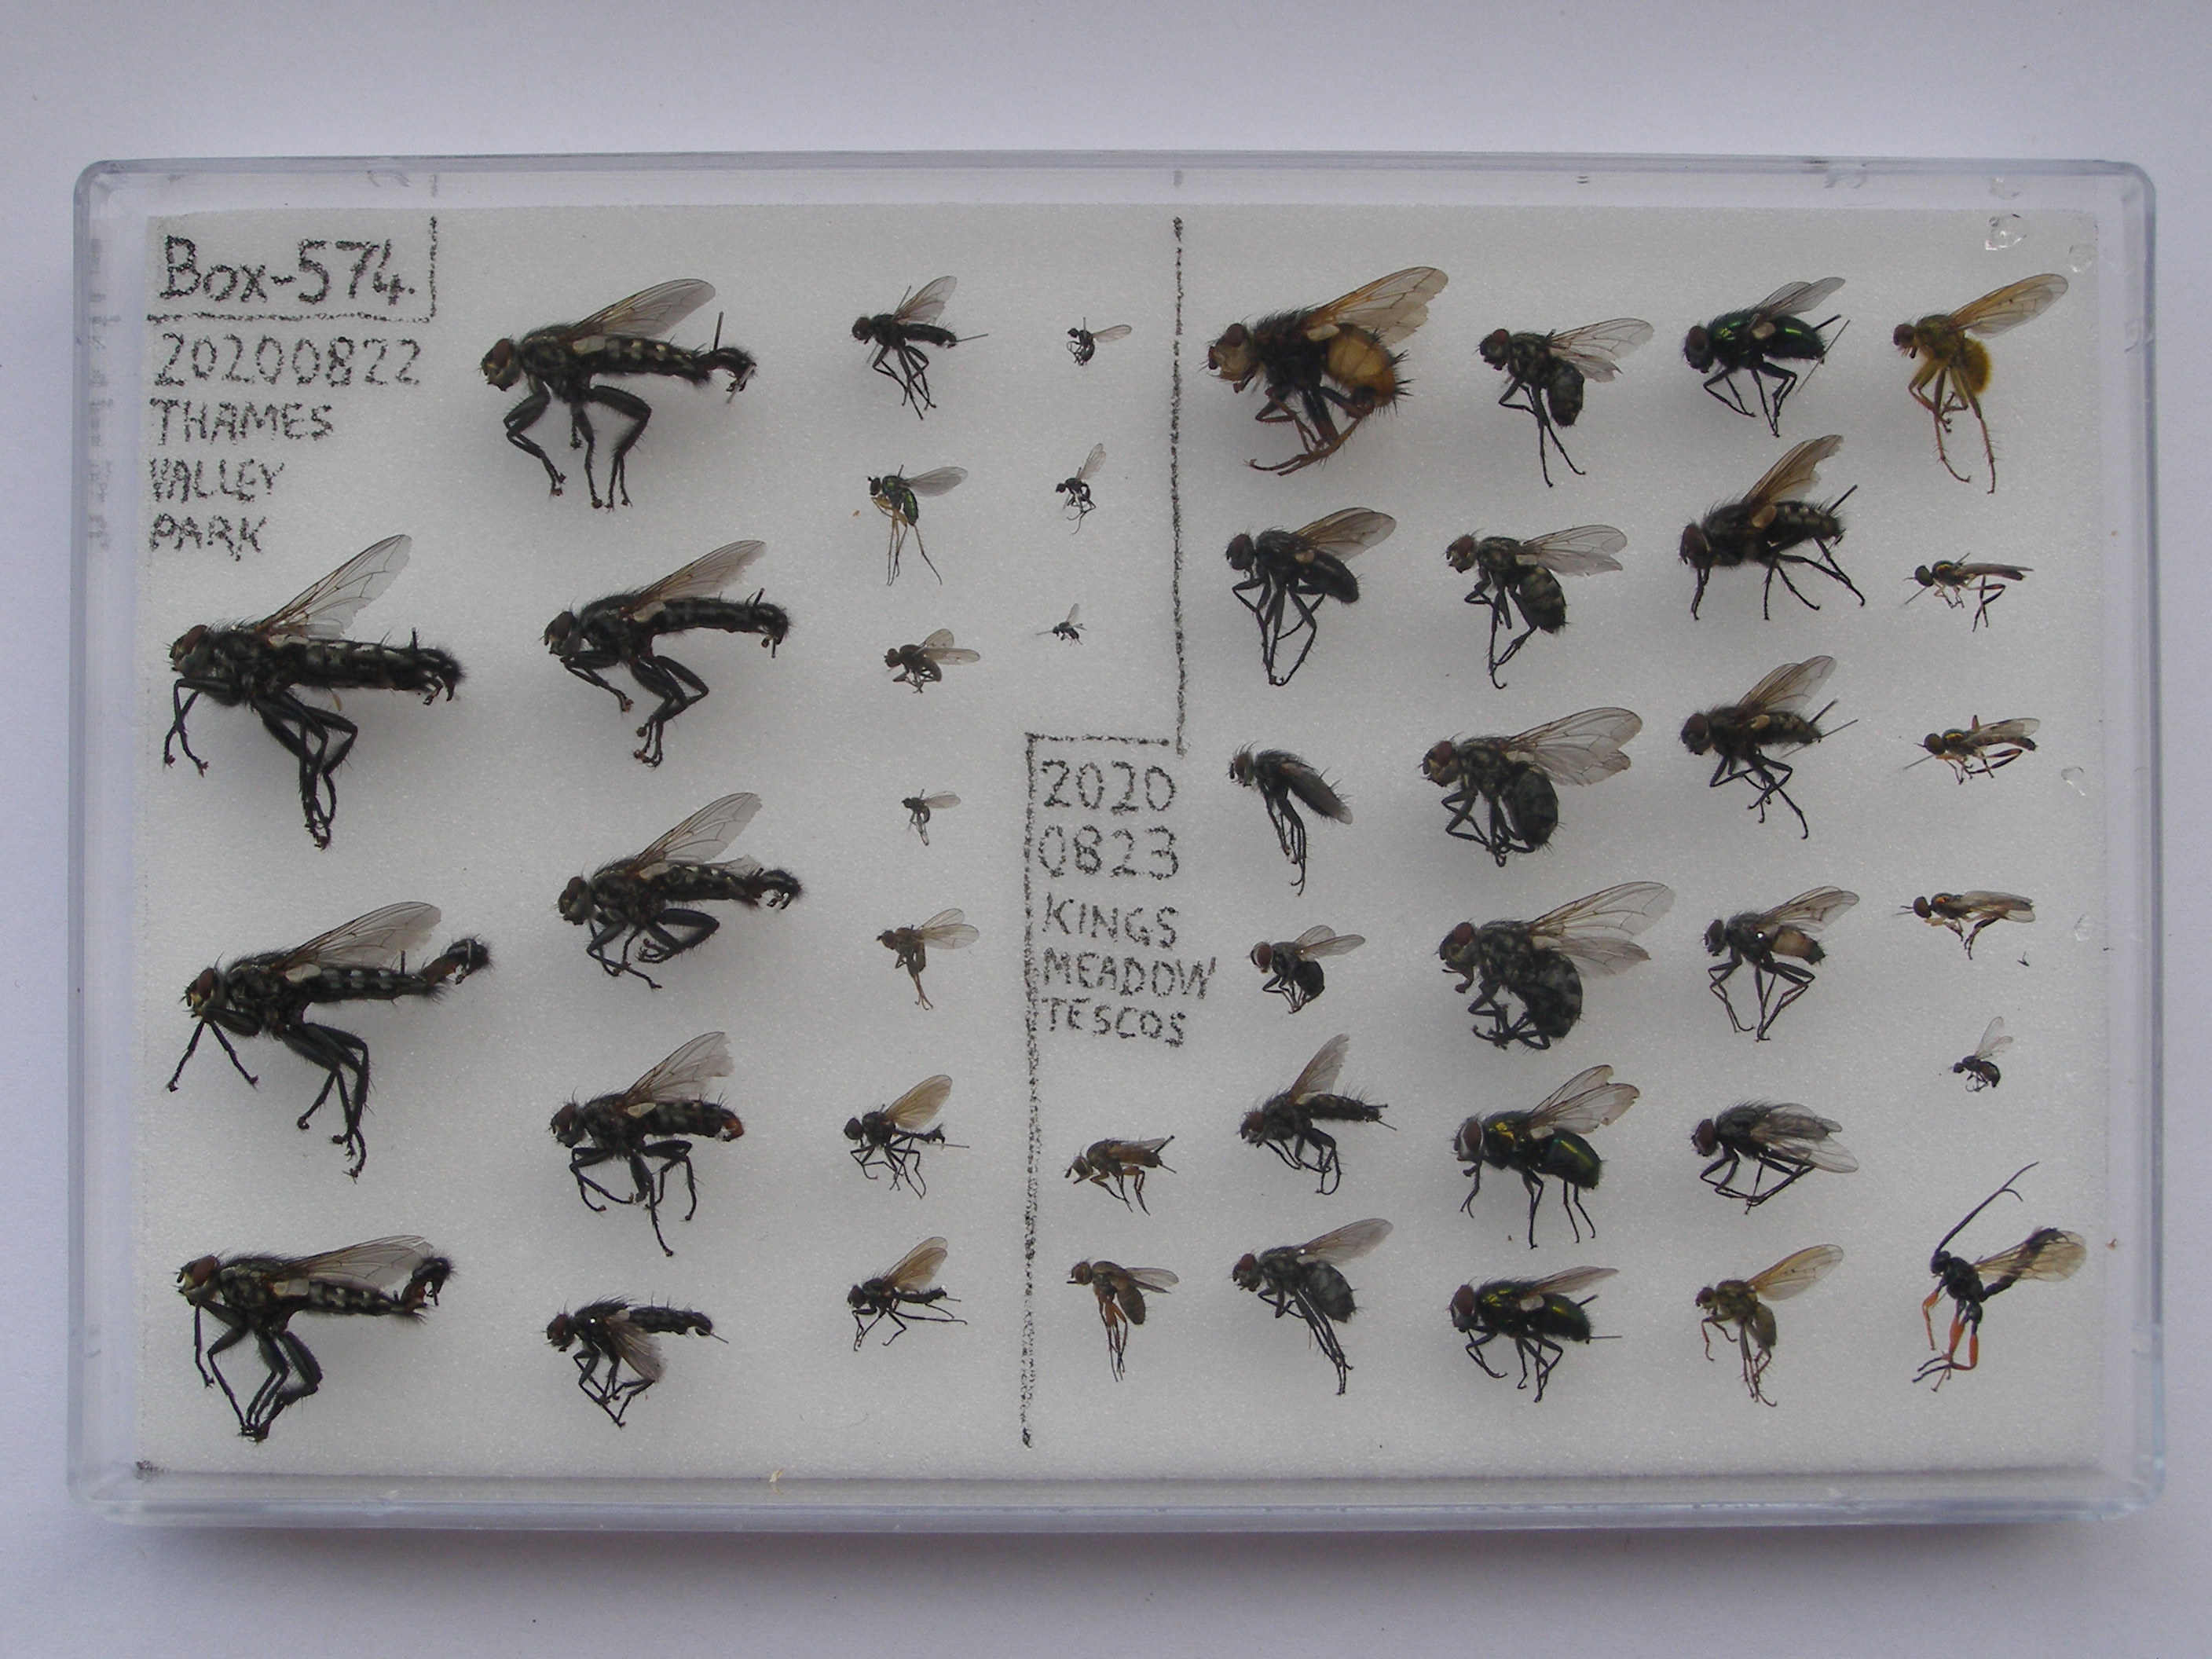 Box-574.
20200822
THAMES
VALLEY
PARK
2020
0823
KINGS
MEADOW
TESCOS